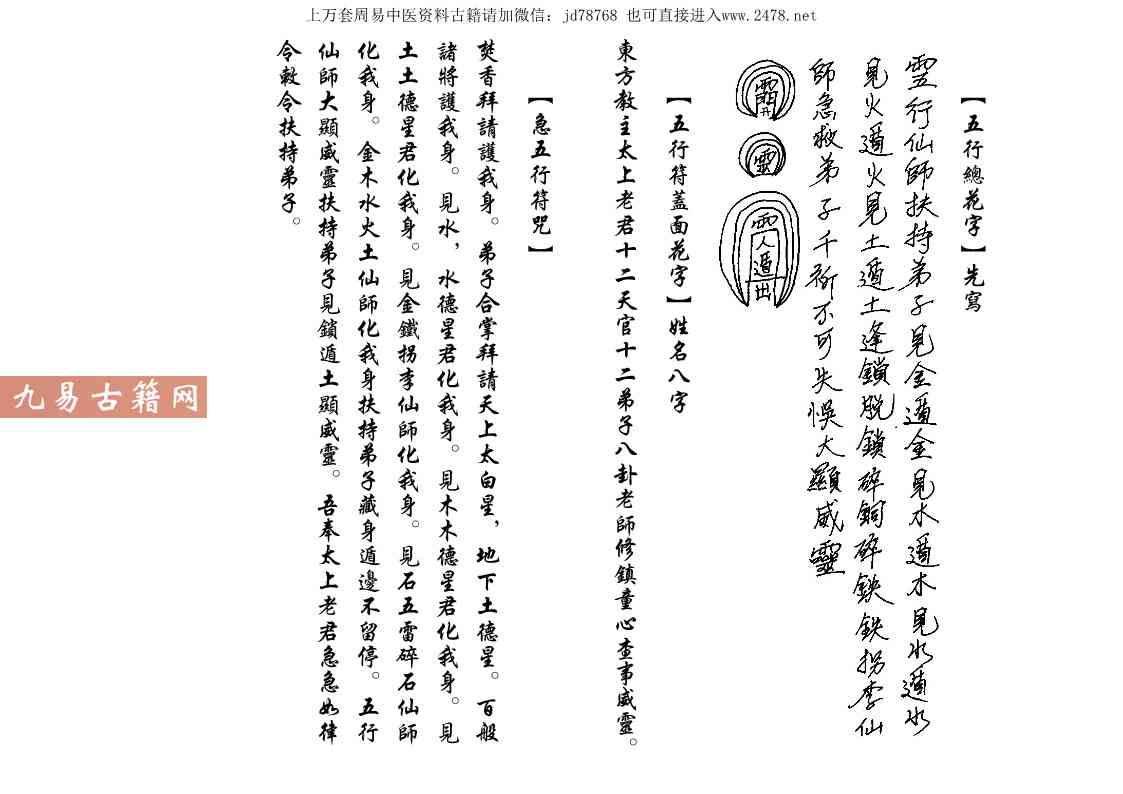 上万套周易中医资料古籍请加微信：jd78768 也可直接进入www.2478.net
【五行總花字】先寫
五行仙師扶持弟子見金遁金見木遁木見水遁水
見火遁火見土遁土逢鎖脫鎖碎銅碎鉄鉄拐李仙
師急救弟子千祈不可失悞大顯威靈
靈
雨人遁出
【五行符蓋面花字】姓名八字
東方教主太上老君十二天官十二弟子八卦老師修鎮童心查事威靈。
【急五行符咒】
焚香拜請護我身。弟子合掌拜請天上太白星，地下土德星。百般
諸將護我身。見水，水德星君化我身。見木木德星君化我身。見
土土德星君化我身。見金鐵拐李仙師化我身。見石五雷碎石仙師
化我身。金木水火土仙師化我身扶持弟子藏身遁邊不留停。五行
仙師大顯威靈扶持弟子見鎖遁土顯威靈。吾奉太上老君急急如律
令敕令扶持弟子。
九易古籍网